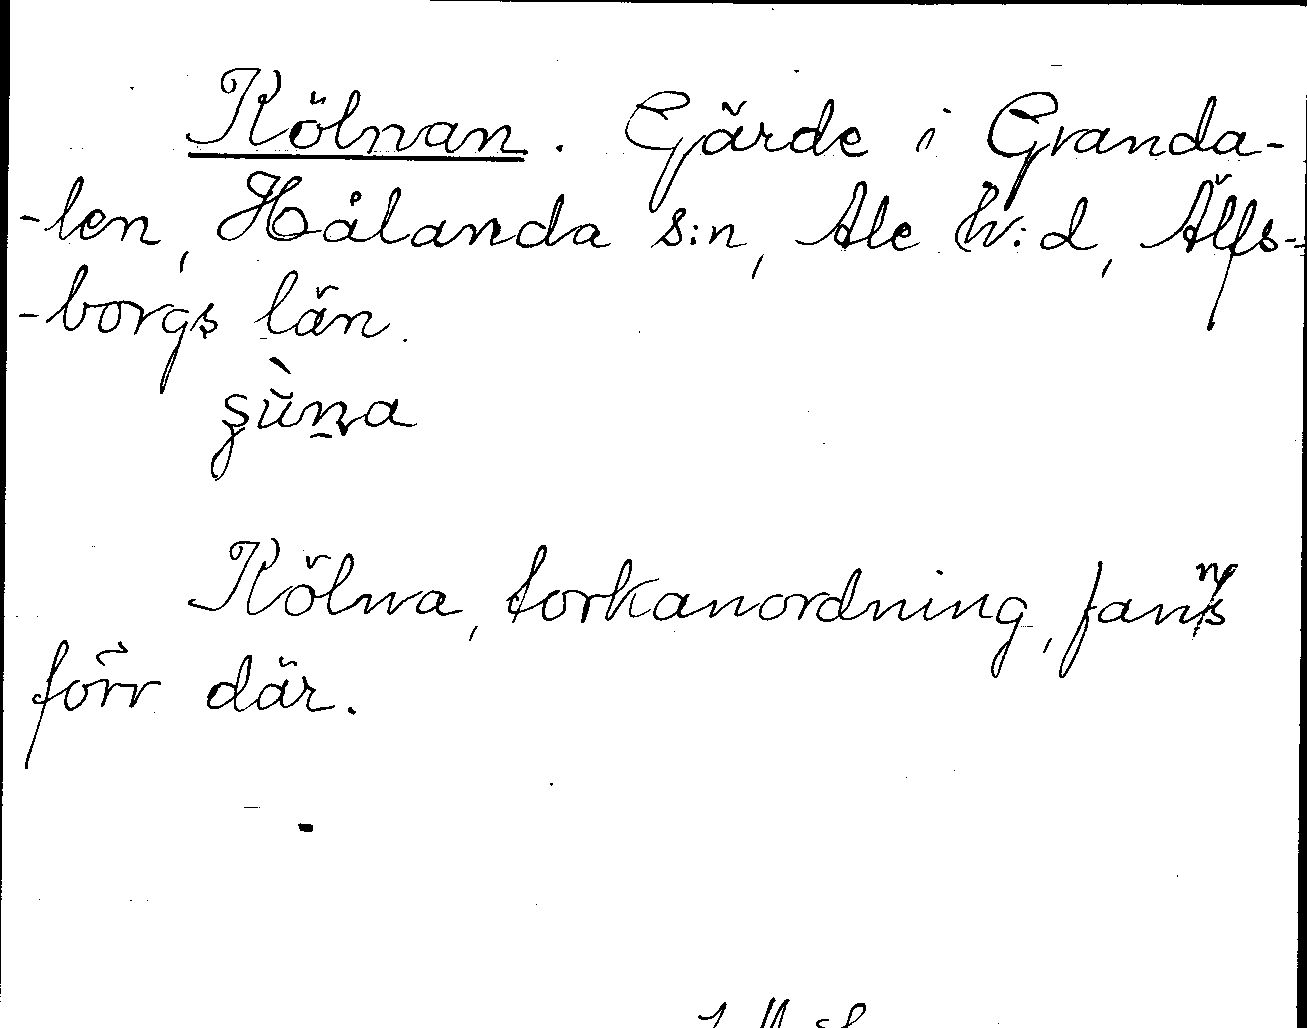 Kölnan. Gärde i Granda-
-len, Hålanda s:n, Ale h:d, Älfs-
-borgs län.
Kölna, torkanordning, fanns
förr där.